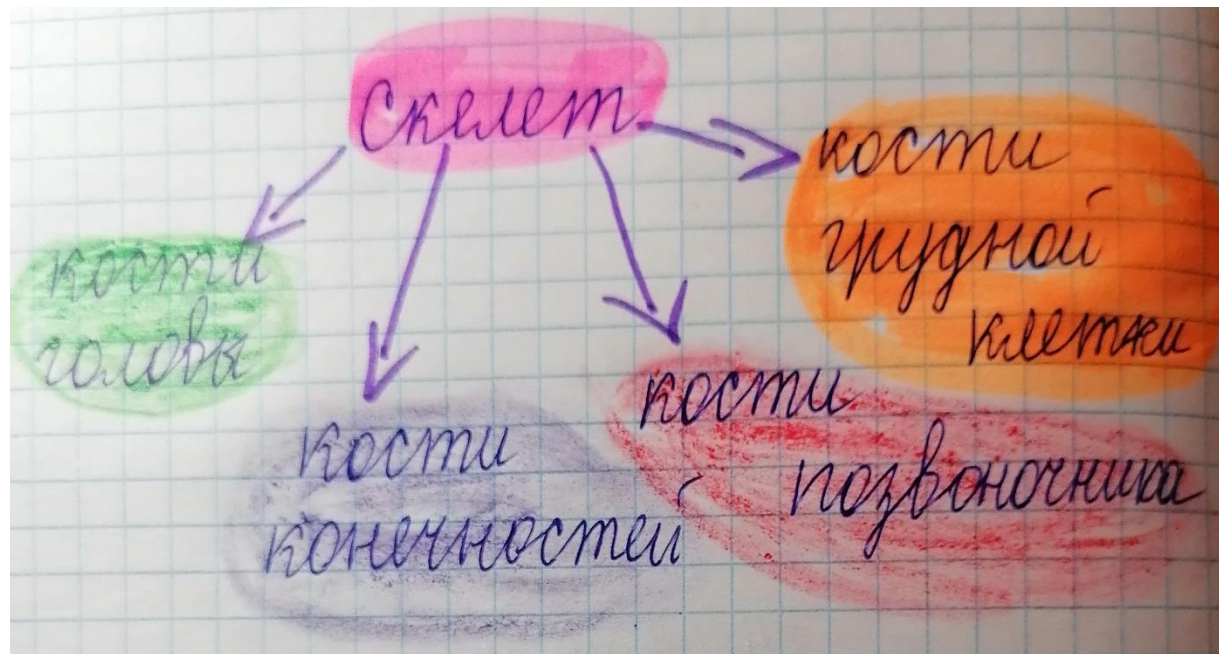 Скелет
кости
головы
кости
конечностей
кости
позвоночника
кости
грудной
клетки